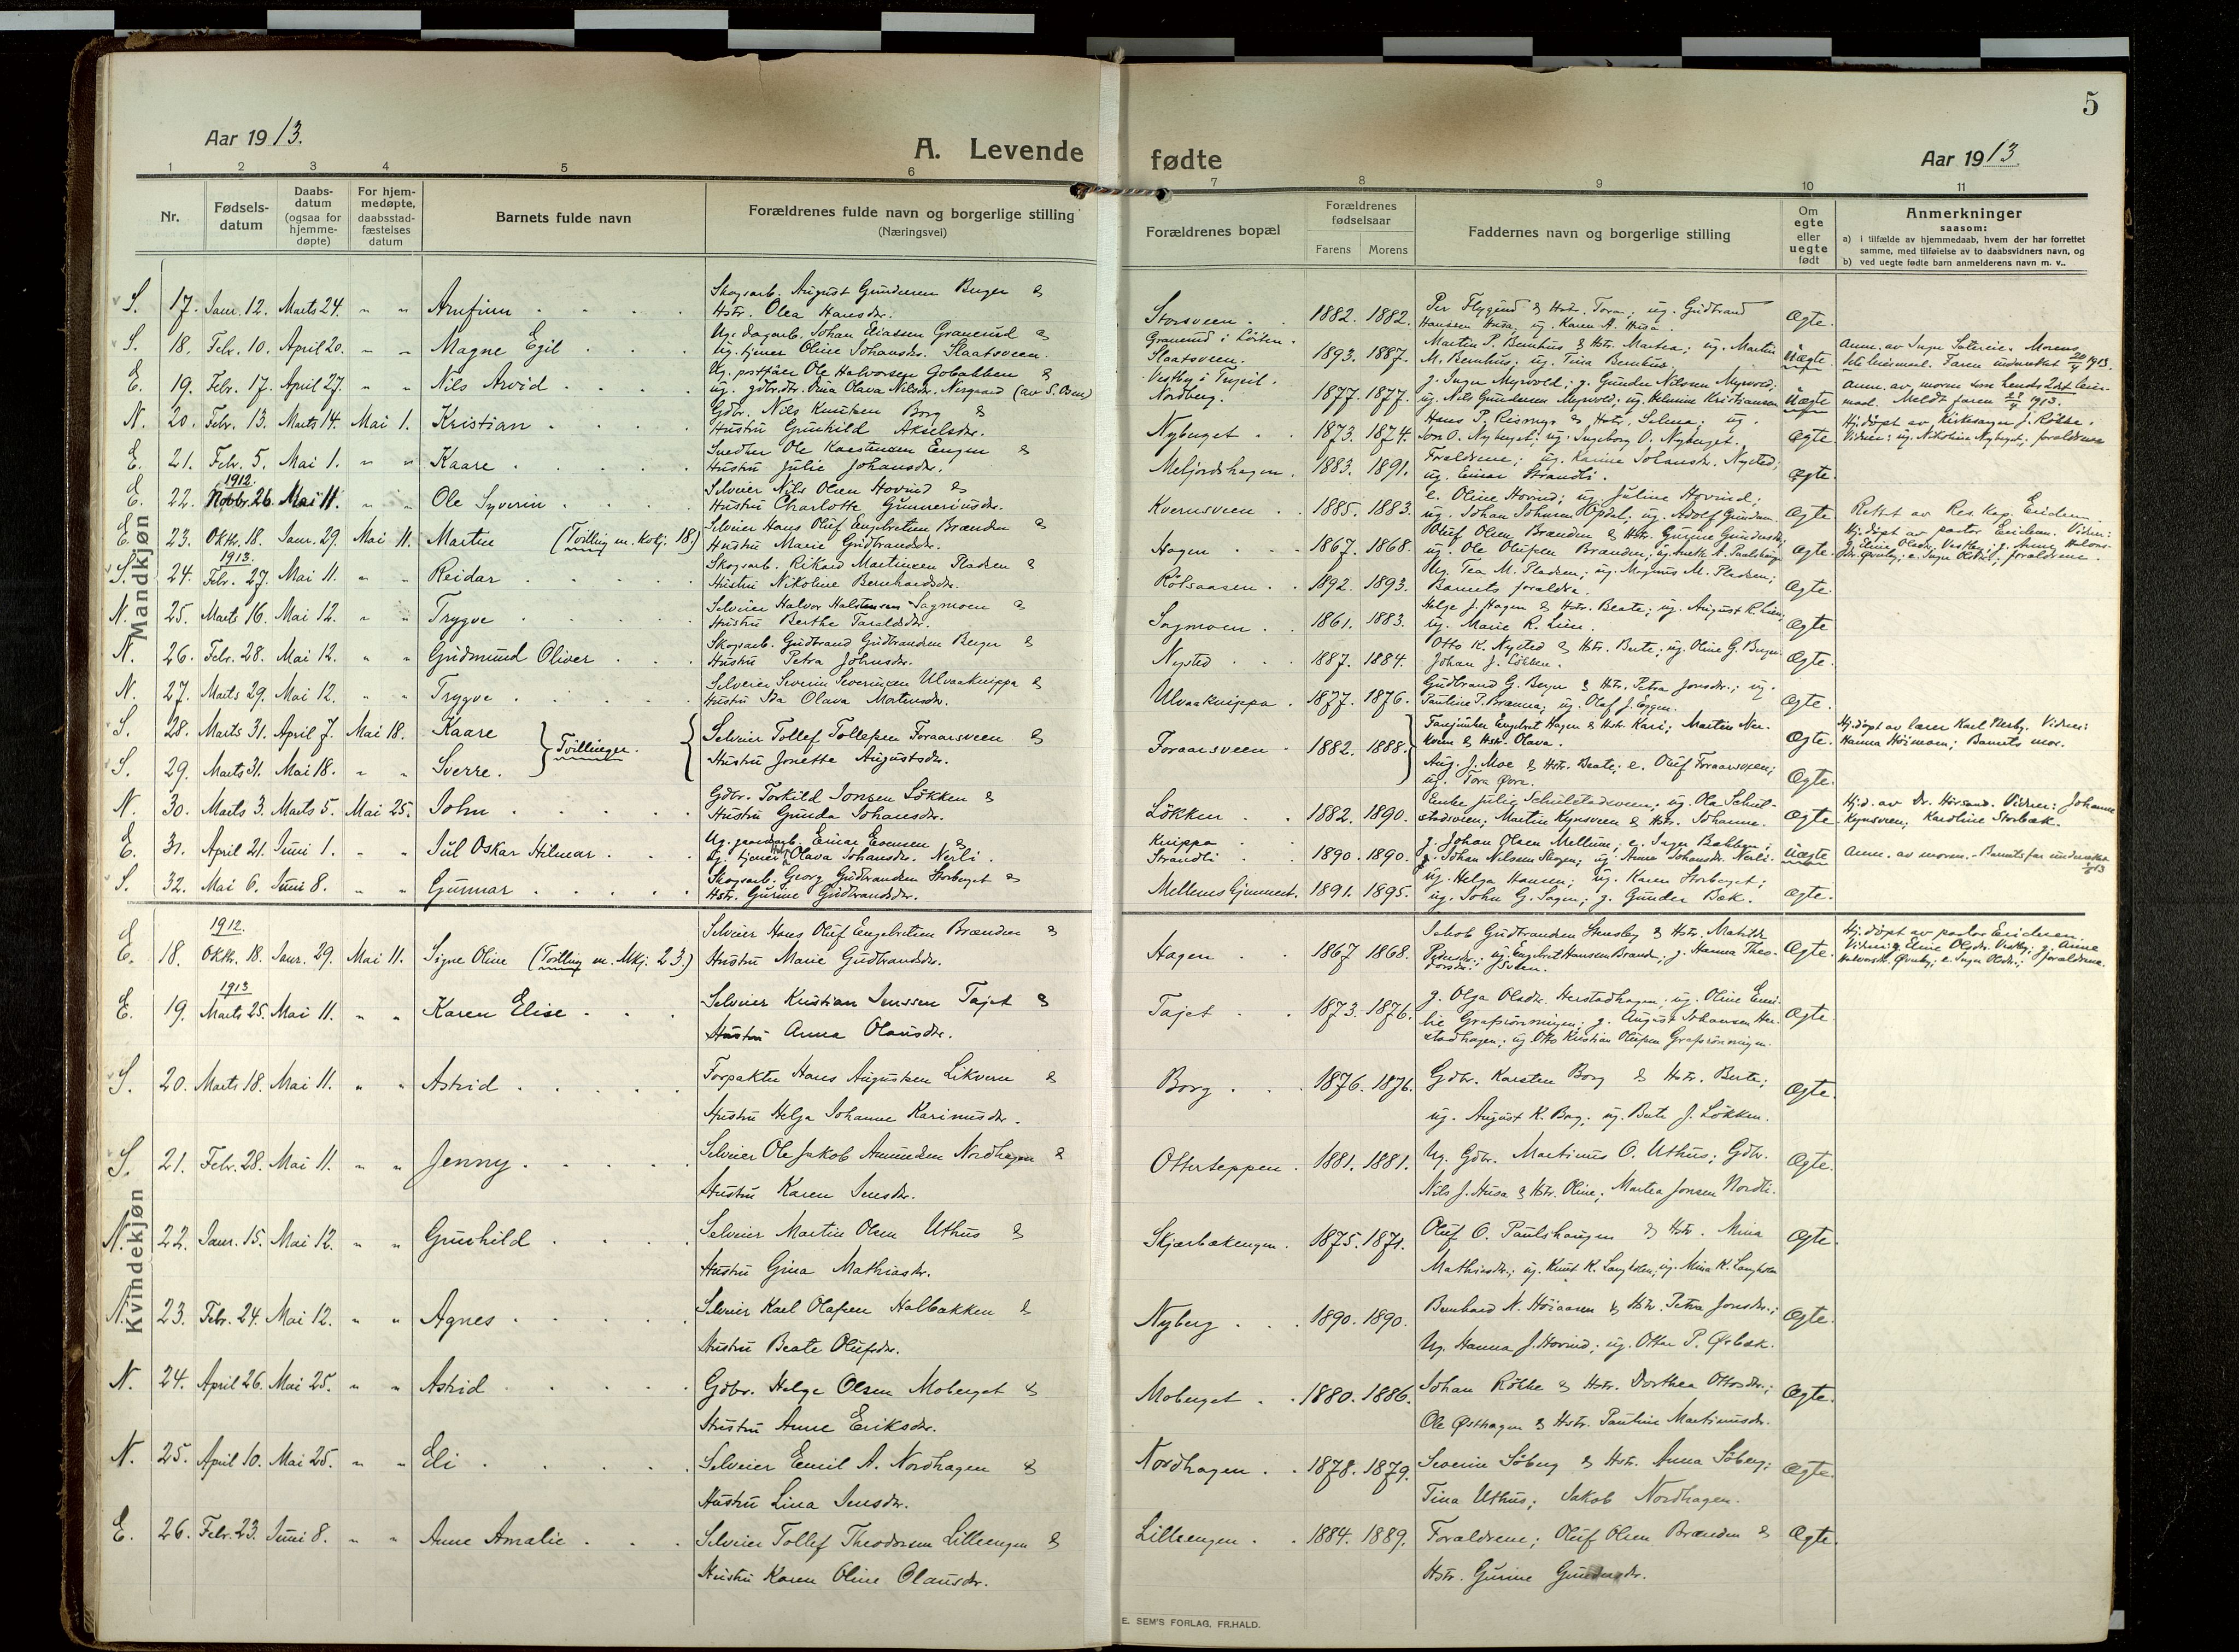 5
Aar 1913.
A. Levende
fødte
Aar 1913
1 2 3 4 5 6 7 8 9 10 11
Nr.
Fødsels-
datum
Daabs-
datum
(ogsaa for
hjemme-
døpte)
For hjem-
medøpte,
daabsstad-
fæstelses
datum
Barnets fulde navn
Forældrenes fulde navn og borgerlige stilling
(Næringsvei)
Forældrenes bopæl
Forældrenes
fødselsaar
Farens Morens
Faddernes navn og borgerlige stilling
Om
egte
eller
uegte
født
Anmerkninger
saasom:
a) i tilfælde av hjemmedaab, hvem der har forrettet
samme, med tilføielse av to daabsvidners navn, og
b) ved uegte fødte barn anmelderens navn m. v..
Mandkjøn
S. 17. Janr. 12. Marts 24. " " Arnfinn
Skogsarb. August Gundersen Berger &
Hstr. Olea Hansdr.
Storsveen. 1882. 1882.
Per Flygind & Hstr. Tora; ug. Gudbrand
Hanssen Husa; ug. Karen A. Husa.
Ægte.
S. 18. Febr. 10. April 20. " " Magne Egil
Ug. dagarb. Johan Eliassen Granerud &
ug. tjener Oline Johansdr. Slaatsveen.
Granerud i Löiten.
Slaatsveen. 1893. 1887.
Martin P. Bernhus & Hstr. Martea; ug. Martin
M. Bernhus; ug. Tina Bernhus.
Uægte
Anm. av Inga Sætereie. Morens
1ste leiermaal. Faren underrettet 20/4 1913.
E. 19. Febr. 17. April 27. " " Nils Arvid
Ug. postfører Ole Halvorsen Gobakken &
ug. gdbr.dtr. Dina Olava Nilsdr. Nergaard (av S. Osen)
Vestby i Trysil.
Nordberg. 1877. 1877.
g. Inger Myrvold; g. Gunder Nilsen Myrvold;
ug. Nils Gundersen Myrvold; ug. Helmine Kristiansen
Uægte
Anm. av moren som hendes 2det leier-
maal. Meldt faren 27/4 1913.
N. 20. Febr. 13. Marts 14. Mai 1. Kristian
Gdbr. Nils Knutsen Borg &
Hustru Gunhild Akselsdr.
Nyberget 1873. 1874.
Hans P. Rismyr & Hstr. Selma; ug.
Jon O. Nyberget; ug. Ingeborg O. Nyberget.
Ægte
Hj.döpt av Kirkesanger J. Røkke.
Vidner: ug. Nikoline Nyberget, forældrene
E. 21. Febr. 5. Mai 1. " " Kaare
Snedker Ole Karstensen Engen &
Hustru Julie Johansdr.
Mefjordshagen. 1883. 1891.
Forældrene; ug. Karine Johansdr. Nysted;
ug. Einar Strandli.
Ægte.
1912.
E. 22. Novbr. 26. Mai 11. " " Ole Syverin
Selveier Nils Olsen Hovind &
Hustru Charlotte Gunneriusdr.
Kvernsveen 1885. 1883.
e. Oline Hovind; ug. Juline Hovind;
ug. Johan Johnsen Opdal; ug. Adolf Gundersen
Ægte
Rettet av Res. Kap. Erichsen
E. 23. Oktbr. 18. Janr. 29. Mai 11. Martin (Tvilling m. Kvkj. 18)
Selveier Hans Oluf Engebretsen Brænden &
Hustru Marie Gudbrandsdr.
Hagen 1867. 1868.
Oluf Olsen Brænden & Hstr. Gurine Gundersdr.;
ug. Ole Olufsen Brænden; ug. Anette A. Paulshaug
Ægte.
Hj.döpt av pastor Erichsen. Vidner:
g. Eline Olsdr. Vestby; g. Anne Halvors-
dr. Ørneby; e. Inger Olsdr.; forældrene
1913.
S. 24. Febr. 27. Mai 11. " " Reidar
Skogsarb. Rikard Martinsen Pladsen &
Hustru Nikoline Bernhardsdr.
Rölsaasen 1892. 1893.
Ug. Tea M. Pladsen; ug. Magnus M. Pladsen;
Barnets forældre.
Ægte.
N. 25. Marts 16. Mai 12. " " Trygve
Selveier Halvor Halstensen Sagmoen &
Hustru Berthe Taraldsdr.
Sagmoen 1861. 1883.
Helge J. Hagen & Hstr. Beate; ug. August R. Lien;
ug. Marie R. Lien.
Ægte
N. 26. Febr. 28. Mai 12. " " Gudmund Oliver
Skogsarb. Gudbrand Gudbrandsen Berger &
Hustru Petra Johnsdr.
Nysted 1887. 1884.
Otto K. Nysted & Hstr. Berte; ug. Oline G. Berger
Johan J. Løkken.
Ægte.
N. 27. Marts 29. Mai 12. " " Trygve
Selveier Severin Severinsen Ulvaaknippa &
Hustru Ida Olava Mortensdr.
Ulvaaknippa. 1877. 1876.
Gudbrand G. Berger & Hstr. Petra Jonsdr.; ug.
Pauline P. Brænna; ug. Olaf J. Eggen.
Ægte.
S. 28. Marts 31. April 7. Mai 18. Kaare
S. 29. Marts 31. Mai 18. " " Sverre.
Tvillinger.
Selveier Tollef Tollefsen Foraarsveen &
Hustru Jonette Augustsdr.
Foraarsveen 1882. 1888.
Fanejunker Engebret Hagen & Hstr. Kari; Martin Ner-
kvern & Hstr. Olava.
Aug. J. Moe & Hstr. Beate; e. Oluf Foraarsveen;
ug. Tora Øvre.
Ægte.
Ægte.
Hj.döpt av lærer Karl Nesby. Vidner:
Hanna Höimoen; Barnets mor.
N. 30. Marts 3. Marts 5. Mai 25. John
Gdbr. Torkild Jonsen Løkken &
Hustru Gunda Johansdr.
Løkken 1882. 1890.
Enke Julie Schulstadsveen; ug. Ola Schul-
stadsveen; Martin Kynsveen & Hstr. Johanne.
Ægte
Hj.d. av Dr. Hörsand. Vidner: Johanne
Kynsveen; Karoline Storbæk.
E. 31. April 21. Juni 1. " " Jul Oskar Hilmar
Ug. gaardsarb. Einar Evensen &
Ug. tjener Olava Johansdr. Nerli.
Knippa
Strandli 1890. 1890.
g. Johan Olsen Mellum; e. Inger Bakken;
g. Johan Nilssen Skogen; ug. Anna Johansdr. Nerli.
Uægte
Anm. av moren. - Barnets far underrettet
1913
S. 32. Mai 6. Juni 8. " " Gunnar
Skogsarb. Georg Gudbrandsen Storberget &
Hstr. Gurine Gudbrandsdr.
Mellemskjønnet. 1891. 1895.
ug. Helga Hansen; ug. Karen Storberget;
ug. John G. Sagen; g. Gunder Bæk.
Ægte.
Kvindekjøn
1912.
E. 18. Oktbr. 18. Janr. 29. Mai 11. Signe Oline (Tvilling m. Mkj. 23.)
Selveier Hans Oluf Engebretsen Brænden &
Hustru Marie Gudbrandsdr.
Hagen 1867 1868.
Jakob Gudbrandsen Stensby & Hstr. Mathilde
Pedersdr.; ug. Engebret Hansen Brænden; g. Hanna Theo-
dorsdr. Jsveen.
Ægte.
Hj.döpt av pastor Erichsen.
Vidner: g. Eline Olsdr. Vestby; g. Anne
Halvorsdr. Ørneby; e. Inger Olsdr.; forældrene.
1913
E. 19. Marts 25. Mai 11. " " Karen Elise
Selveier Kristian Jenssen Tajet &
Hustru Anna Olausdr.
Tajet 1873. 1876.
g. Olga Olsdr. Herstadhagen; ug. Oline Emi-
lie Grafsrönningen; g. August Johansen Her-
stadhagen; ug Otto Kristian Olufsen Grafsrönningen.
Ægte.
S. 20. Marts 18. Mai 11. " " Astrid
Forpakter Hans Augustsen Likvern &
Hustru Helga Johanne Karinusdr.
Borg 1876. 1876.
Gdbr. Karsten Borg & Hstr. Berte;
ug. August K. Borg; ug. Berte J. Løkken.
Ægte.
S. 21. Febr. 28. Mai 11. " " Jenny
Selveier Ole Jakob Amundsen Nordhagen &
Hustru Karen Jensdr.
Otterteppen. 1881. 1881.
Ug. Gdbr. Martinus O. Uthus; Gdbr.
Nils J. Husa & Hstr. Oline; Martea Jonsen Nordli.
Ægte.
N. 22. Janr. 15. Mai 12. " " Gunhild
Selveier Martin Olsen Uthus &
Hustru Gina Mathiasdr.
Skjærbækengen. 1875. 1871.
Oluf O. Paulshaugen & Hstr. Mina
Mathiasdr.; ug. Knut K. Langholen; ug. Mina K. Langholen
Ægte.
N. 23. Febr. 24. Mai 12. " " Agnes
Selveier Karl Olafsen Halbakken &
Hustru Beate Olufsdr.
Nyberg 1890. 1890.
Bernhard N. Höiaasen & Hstr. Petra Jonsdr.;
Ug. Hanna J. Hovind; ug. Otter P. Ørbæk.
Ægte.
N. 24. April 26. Mai 25. " " Astrid
Gdbr. Helge Olsen Moberget &
Hustru Anne Eriksdr.
Moberget 1880. 1886.
Johan Røkke & Hstr. Dorthea Ottosdr.;
Ole Østhagen & Hstr. Pauline Martinusdr.
Ægte.
N. 25. April 10. Mai 25. " " Eli
Selveier Emil A. Nordhagen &
Hustru Lina Jensdr.
Nordhagen 1878. 1879.
Severin Söberg & Hstr. Anna Söberg;
Tina Uthus; Jakob Nordhagen.
Ægte.
E. 26. Febr. 23. Juni 8. " " Anne Amalie
Selveier Tollef Theodorsen Lilleengen &
Hustru Karen Oline Olausdr.
Lilleengen 1884. 1889.
Forældrene; Oluf Olsen Brænden &
Hstr. Gurine Gundersdr.
Ægte.
E. SEM'S FORLAG, FR.HALD.